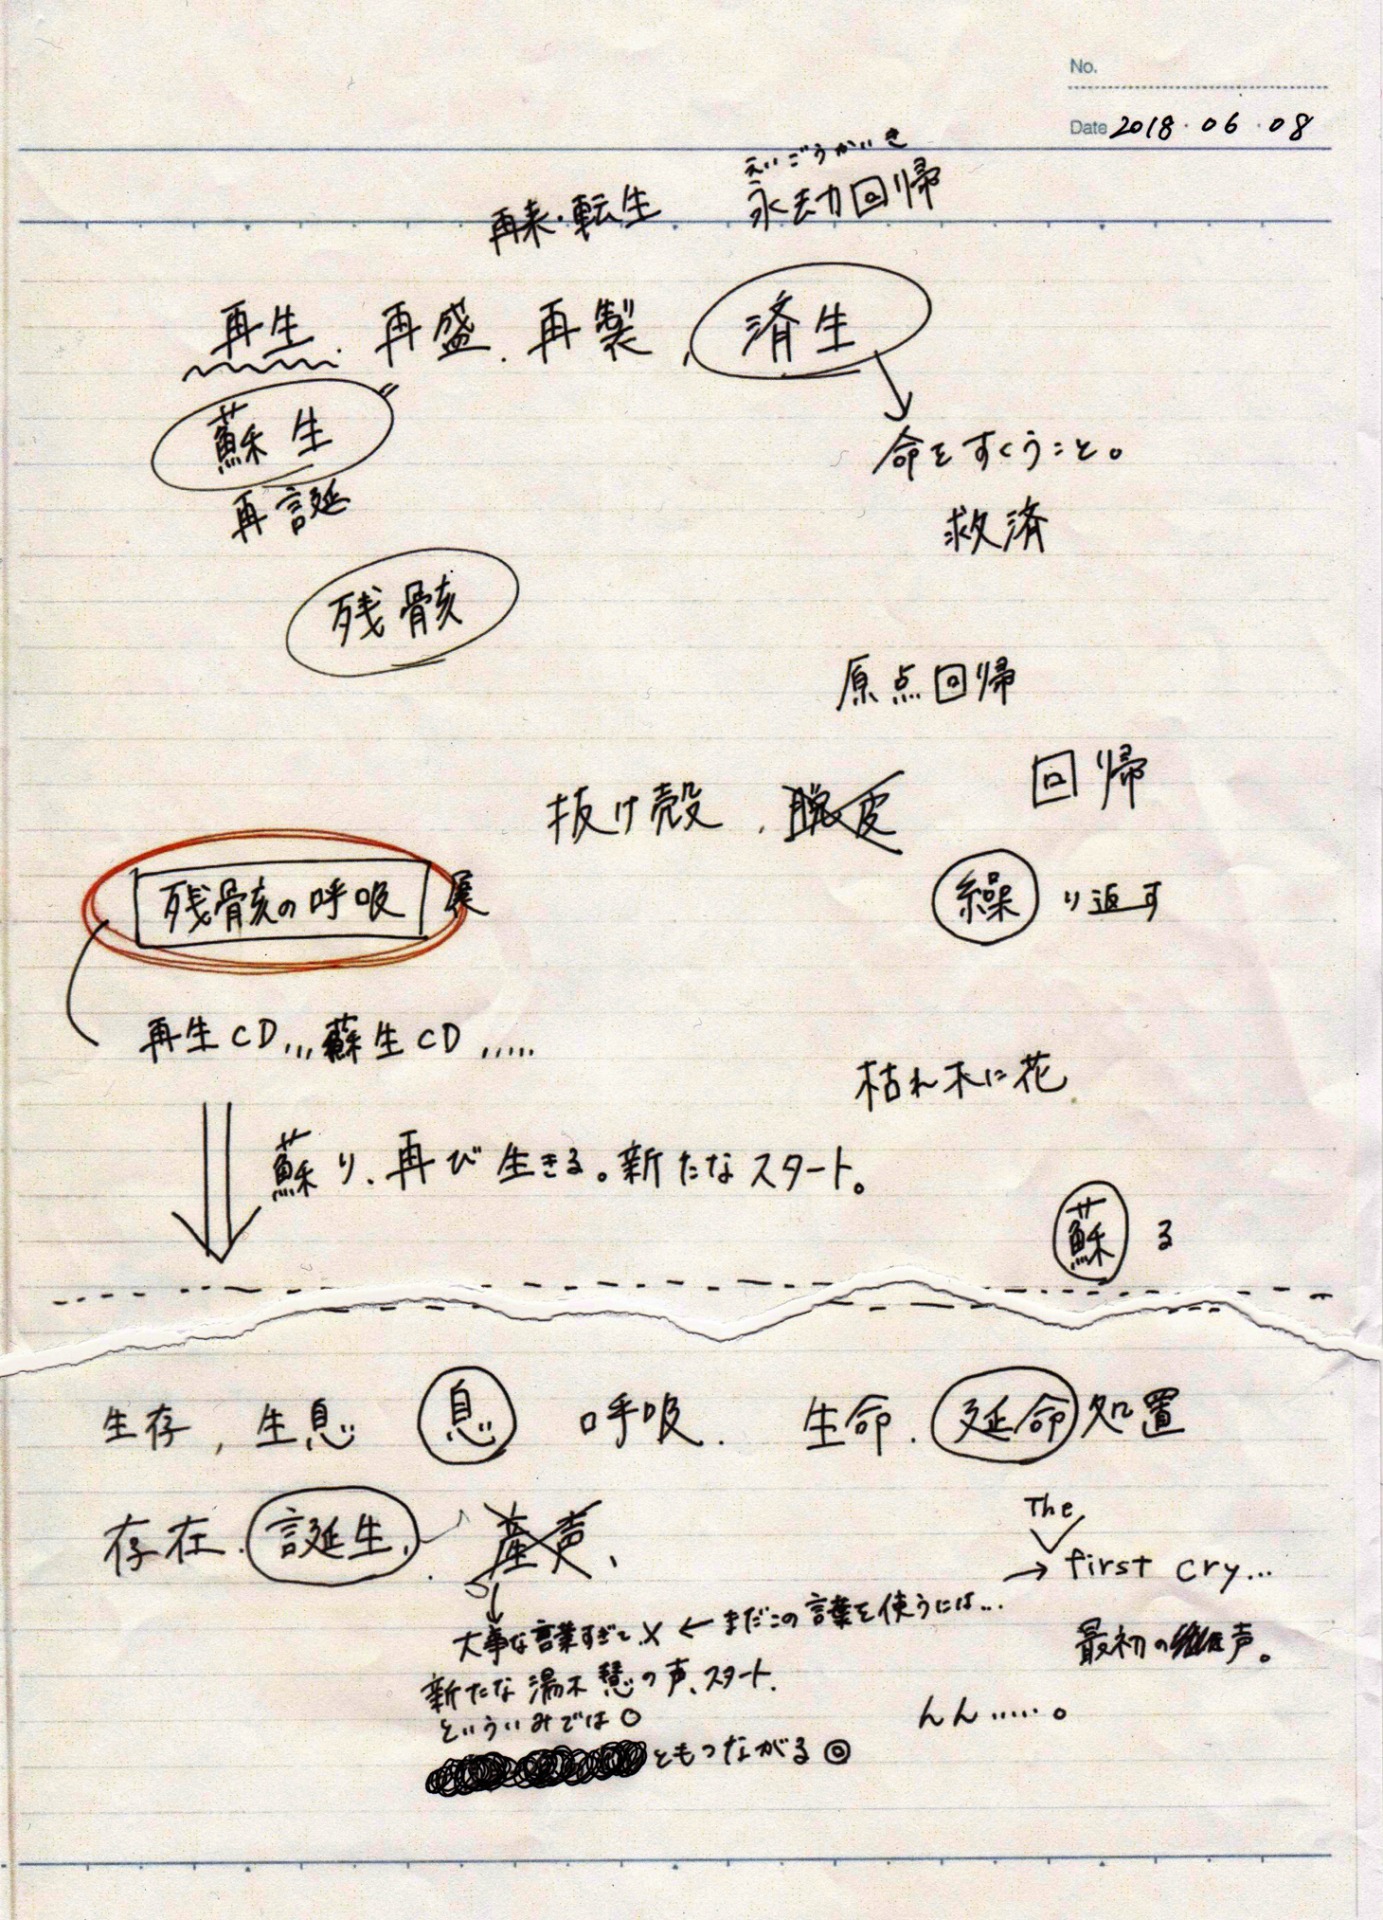 No.
Date 2018.06.08
えいごうかいき
再来・転生 永劫回帰
再生、再盛、再製、済生
蘇生
命をすくうこと。
再誕
救済
残骸
原点回帰
回帰
抜け殻、脱皮
残骸の呼吸展
繰り返す
再生CD,,,蘇生CD,,,,,
枯れ木に花
蘇り、再び生きる。新たなスタート。
蘇る
生存,生息 息 呼吸. 生命.延命処置
存在.誕生、産声、
The
→ first cry...
大事な言葉すぎて、X ← まだこの言葉を使うには...
最初の産声。
新たな湯木慧の声、スタート、
といういみでは○
んん......。
ともつながる◎